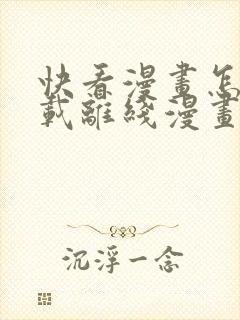 快看漫畫怎
載離綫漫畫
沉浮一念